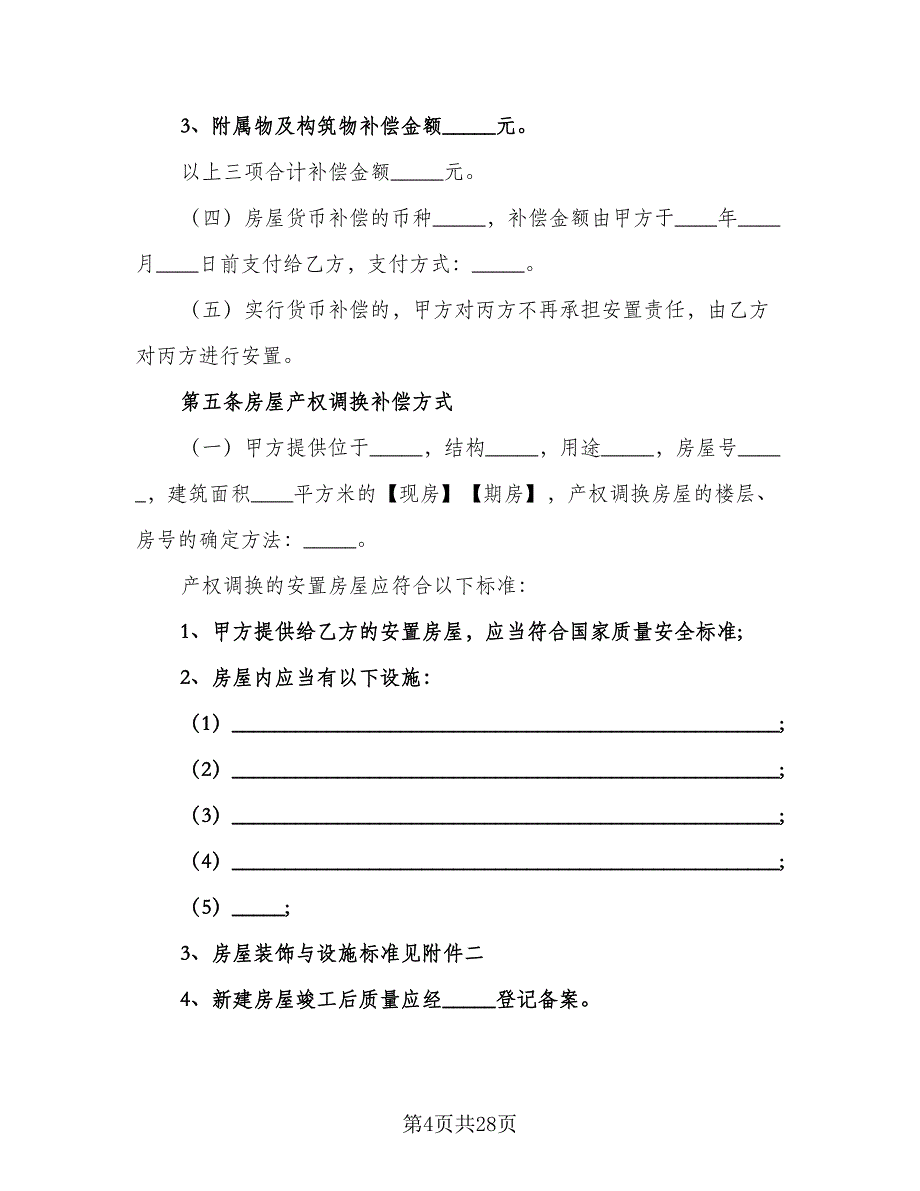 3、附属物及构筑物补偿金额_____元。
以上三项合计补偿金额_____元。
（四）房屋货币补偿的币种_____，补偿金额由甲方于____年____
月____日前支付给乙方，支付方式：_____。
（五）实行货币补偿的，甲方对丙方不再承担安置责任，由乙方
对丙方进行安置。
第五条房屋产权调换补偿方式
（一）甲方提供位于_____，结构_____，用途_____，房屋号____
_，建筑面积____平方米的【现房】【期房】，产权调换房屋的楼层、
房号的确定方法：_____。
产权调换的安置房屋应符合以下标准：
1、甲方提供给乙方的安置房屋，应当符合国家质量安全标准;
2、房屋内应当有以下设施：
（1）____________________________________________________;
（2）____________________________________________________;
（3）____________________________________________________;
（4）____________________________________________________;
（5）_____;
3、房屋装饰与设施标准见附件二
4、新建房屋竣工后质量应经_____登记备案。
第4页共28页